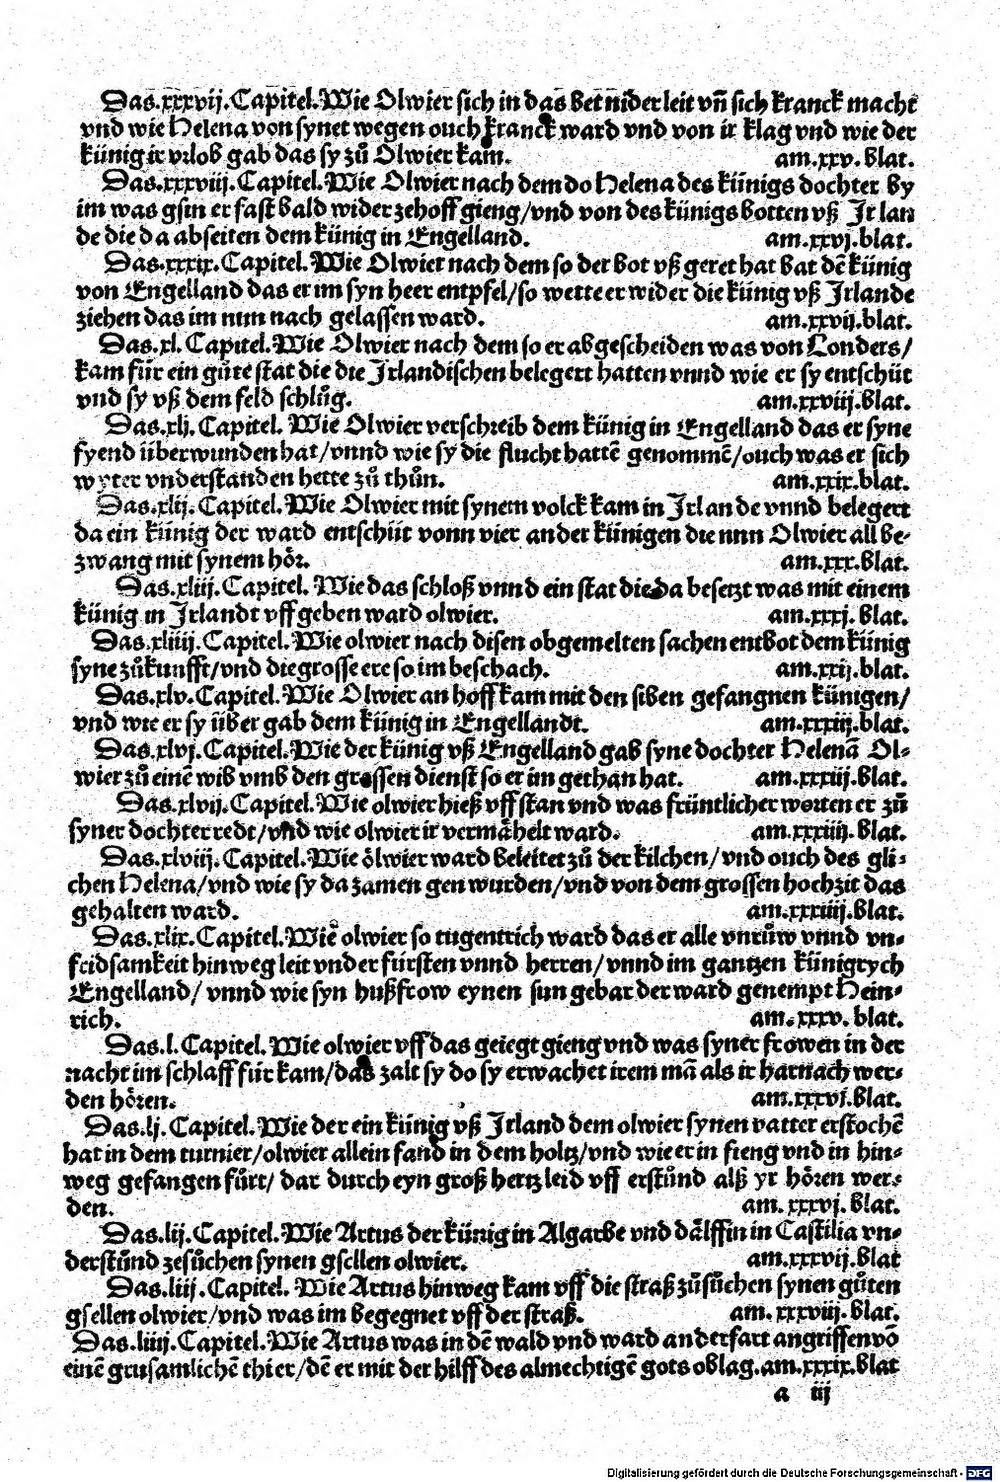 Das.xxxvij.Capitel.Wie Olwier sich in das bet nider leit vn̄ sich kranck macht
vnd wie Helena von synet wegen ouch kranck ward vnd von ir klag vnd wie der
künig ir vrlob gab das sy zů Olwier kam. am.xxv.blat.
Das.xxxviij.Capitel.Wie Olwier nach dem do Helena des künigs dochter by
im was gsin er fast bald wider zehoff gieng/vnd von des künigs botten vß Irlan
de die da abseiten dem künig in Engelland. am.xxvj.blat.
Das.xxxix.Capitel.Wie Olwier nach dem so der bot vß geret hat bat dē künig
von Engelland das er im syn heer entpfel/so wette er wider die künig vß Irlande
ziehen das im nun nach gelassen ward. am.xxvij.blat.
Das.xl.Capitel.Wie Olwier nach dem so er abgescheiden was von Londers/
kam für ein gůte stat die die Irlandischen belegert hatten vnnd wie er sy entschüt
vnd sy vß dem feld schlůg. am.xxviij.blat.
Das.xlj.Capitel. Wie Olwier verschreib dem künig in Engelland das er syne
fyend überwunden hat/vnnd wie sy die flucht hattē genommē/ouch was er sich
wyter vnderstanden hette zů thůn. am.xxix.blat.
Das.xlij.Capitel. Wie Olwier mit synem volck kam in Irlande vnnd belegert
da ein künig der ward entschüt vonn vier ander künigen die nun Olwier all be-
zwang mit synem hör. am.xxx.blat.
Das.xliij.Capitel. Wie das schloß vnnd ein stat die da besetzt was mit einem
künig in Irlandt vff geben ward olwier. am.xxxj.blat.
Das.xliiij.Capitel.Wie olwier nach disen obgemelten sachen entbot dem künig
syne zůkunfft/vnd die grosse ere so im beschach. am.xxij.blat.
Das.xlv.Capitel. Wie Olwier an hoff kam mit den siben gefangnen künigen/
vnd wie er sy über gab dem künig in Engellandt. am.xxxiij.blat.
Das.xlvj.Capitel.Wie der künig vß Engelland gab syne dochter Helenā Ol-
wier zů einē wib vmb den grossen dienst so er im gethan hat. am.xxxiij.blat.
Das.xlvij.Capitel.Wie olwier hieß vff stan vnd was früntlicher worten er zů
syner dochter redt/vnd wie olwier ir vermähelt ward. am.xxxiiij.blat.
Das.xlviij.Capitel.Wie ölwier ward beleitet zů der kilchen/vnd ouch des gli-
chen Helena/vnd wie sy da zamen gen wurden/vnd von dem grossen hochzit das
gehalten ward. am.xxxiiij.blat.
Das.xlix.Capitel.Wie olwier so tugentrich ward das er alle vnrůw vnnd vn-
fridsamkeit hinweg leit vnder fürsten vnnd herren/vnnd im gantzen künigrych
Engelland/ vnnd wie syn hußfrow eynen sun gebar der ward genempt Hein-
rich. am.xxxv.blat.
Das.l.Capitel.Wie olwier vff das geiegt gieng vnd was syner frowen in der
nacht im schlaff für kam/das zalt sy do sy erwachet irem mā als ir harnach wer-
den hören. am.xxxvj.blat.
Das.lj.Capitel.Wie der ein künig vß Irland dem olwier synen vatter erstochē
hat in dem turnier/olwier allein fand in dem holtz/vnd wie er in fieng vnd in hin-
weg gefangen fůrt/ dar durch eyn groß hertz leid vff erstůnd alß yr hören wer-
den. am.xxxvj.blat.
Das.lij.Capitel.Wie Artus der künig in Algarbe vnd dälffin in Castilia vn-
derstůnd zesůchen synen gsellen olwier. am.xxxvij.blat
Das.liij.Capitel. Wie Artus hinweg kam vff die straß zůsůchen synen gůten
gsellen olwier/vnd was im begegnet vff der straß. am.xxxviij.blat.
Das.liiij.Capitel.Wie Artus was in dē wald vnd ward anderfart angriffen vō
einē grusamlichē thier/dē er mit der hilff des almechtigē gots oblag.am.xxxix.blat
a iij
Digitalisierung gefördert durch die Deutsche Forschungsgemeinschaft - DFG